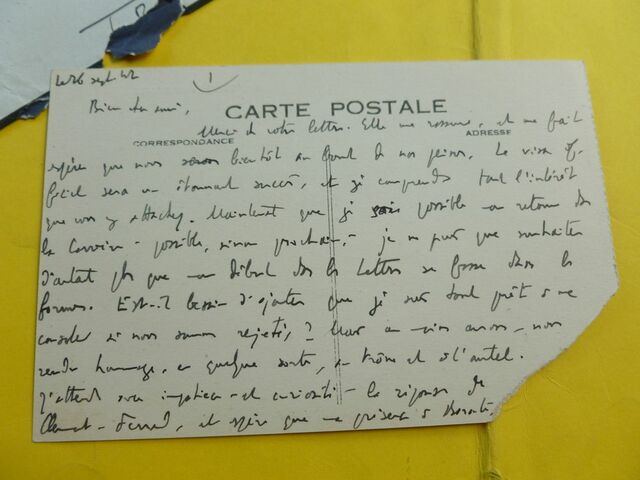 le 26 sept 42
1
Bien cher ami,
CARTE POSTALE
CORRESPONDANCE
ADRESSE
Merci de votre lettre. Elle me rassure, et me fait
espérer que nous serons bientôt au bout de nos peines. Le visa
sera un étonnant succès, et je comprends tout l'intérêt
que vous y attachez. Maintenant que je sais possible un retour de
la Corrèze - possible, sinon prochain, - je ne puis que souhaiter
d'autant plus que mon début dans les Lettres se fasse dans les
formes. Est-il besoin d'ajouter que je suis tout prêt à me
consoler si nous sommes rejetés ? Nous aurons au moins
rendu hommage, en quelque sorte, au trône et à l'autel.
J'attends avec impatience - et curiosité - la réponse de
Clermont-Ferrand, et espère que ma présence à